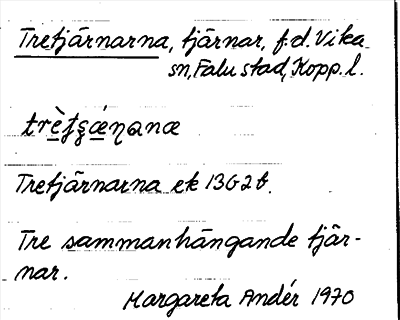 Tretjärnarna, tjärnar, f.d. Vika
sn, Falu stad, Kopp. l.
trètʂǽɳanæ
Tretjärnarna ek 13G2t.
Tre sammanhängande tjär-
nar.
Margareta Andér 1970